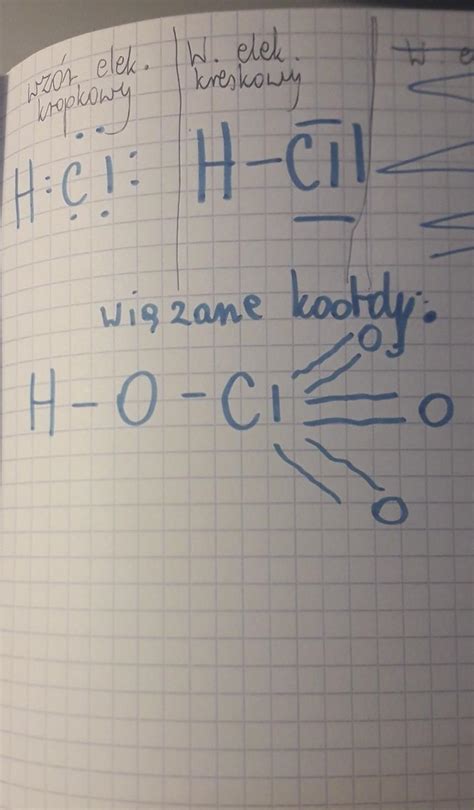 wzór elek.
kropkowy
W. elek.
kreskowy
H:Cl:
H-Cl|
wiązane koordy:
H-O-Cl
O
O
O